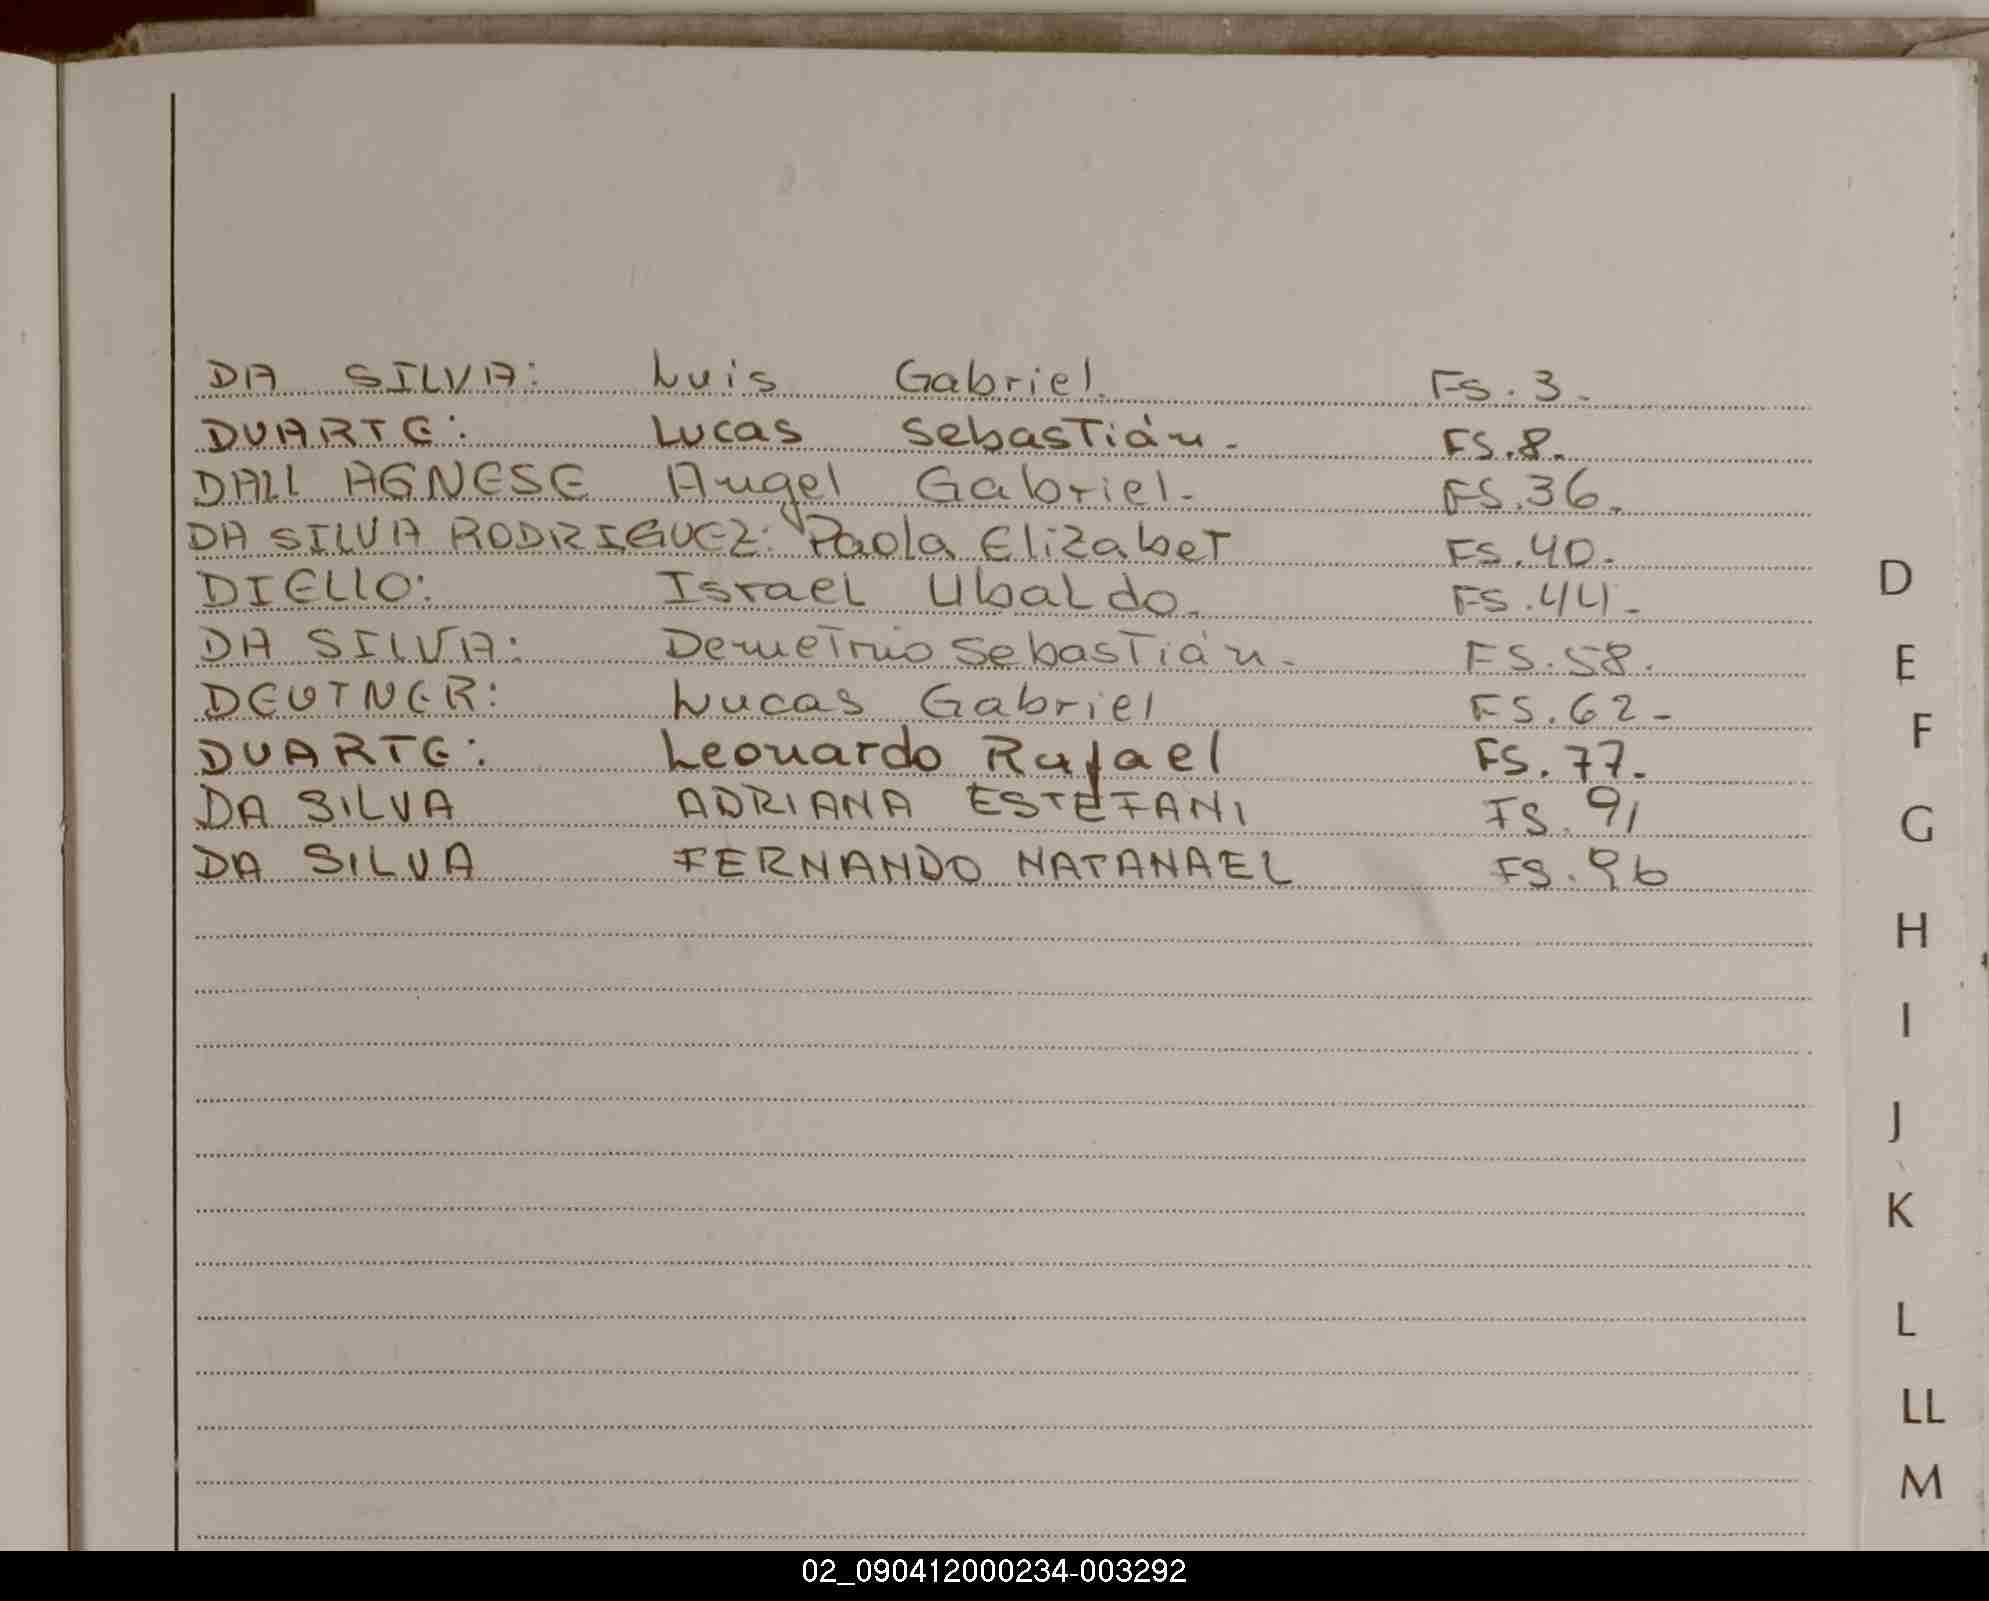 DA SILVA: Luis Gabriel. FS.3.
DUARTE: Lucas Sebastián. FS.8.
DALL AGNESE Angel Gabriel. FS.36.
DA SILVA RODRIGUEZ: Paola Elizabet FS.40.
DIELLO: Israel Ubaldo. FS.44.
DA SILVA: Demetrio Sebastián. FS.58.
DEUTNER: Lucas Gabriel FS.62.
DUARTE: Leonardo Rafael FS.77.
DA SILVA ADRIANA ESTEFANI FS.91
DA SILVA FERNANDO NATANAEL FS.96
D
E
F
G
H
I
J
K
L
LL
M
02_090412000234-003292